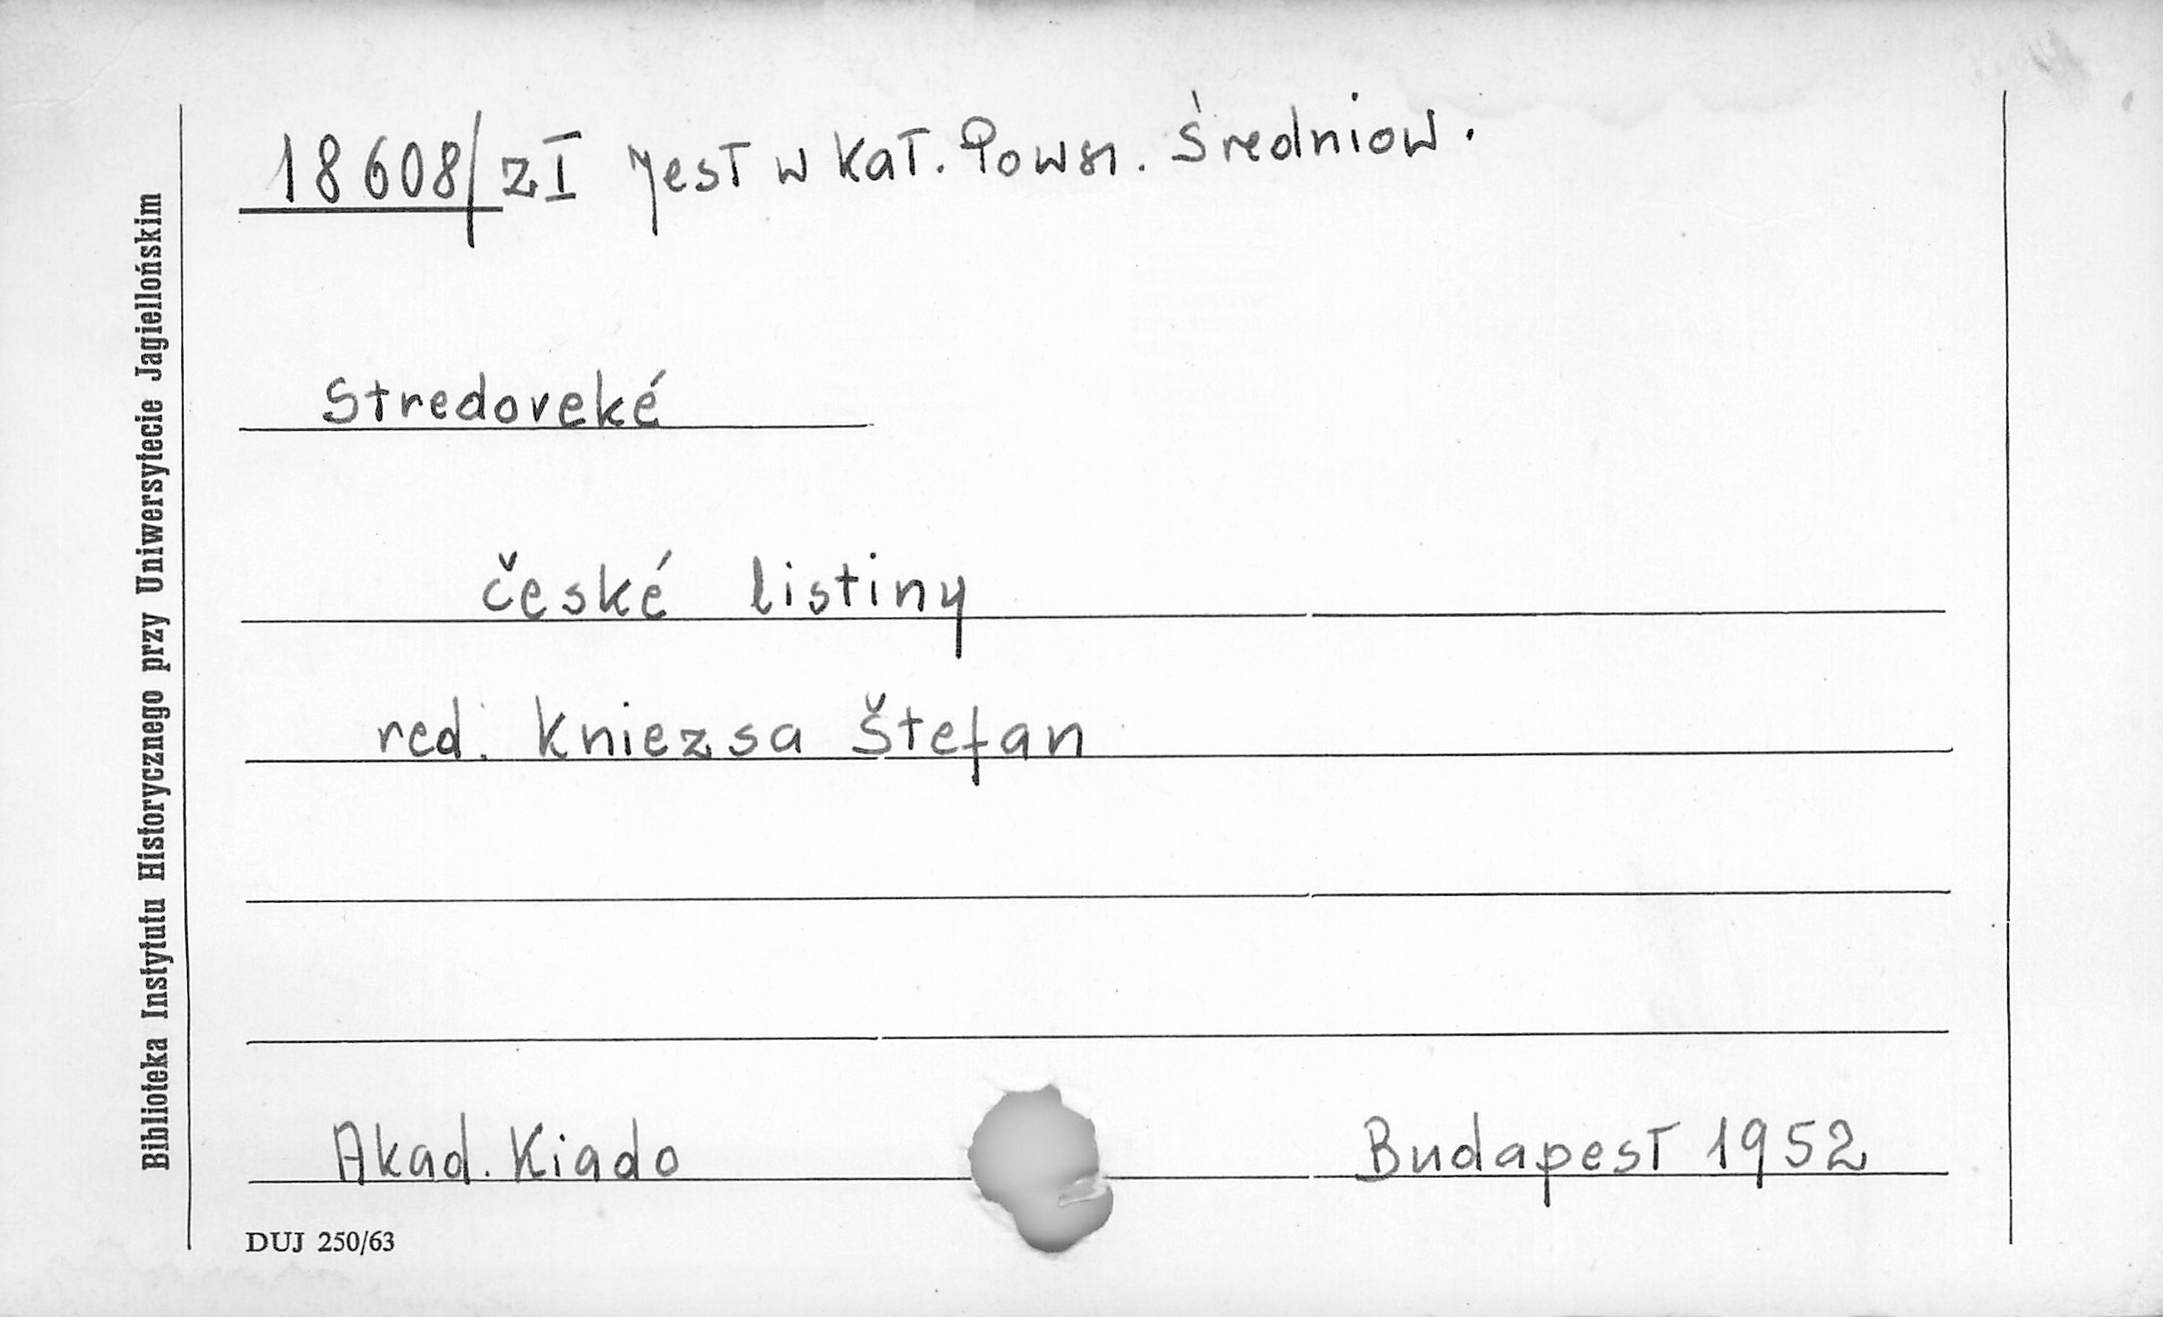 18608/zI jest w kat. Powsz. Średniow.
Stredoveké
české listiny
red. Kniezsa Štefan
Akad. Kiado Budapest 1952
DUJ 250/63
Biblioteka Instytutu Historycznego przy Uniwersytecie Jagiellońskim